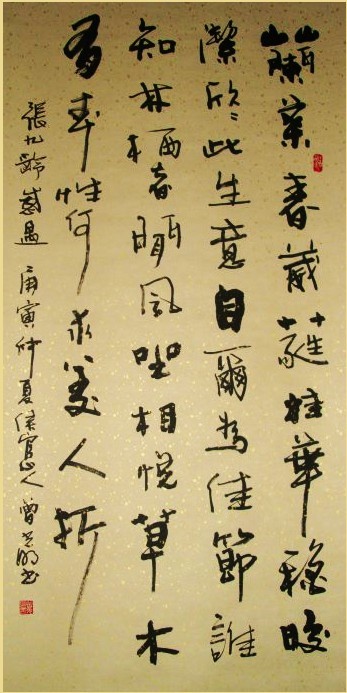 蘭葉春葳蕤桂華穐皎
潔欣〻此生意自爾為佳節誰
知林栖者聞風坐相悅草木
有本性何求美人折
張九齡感遇 庚寅仲夏侯官人 曾明書